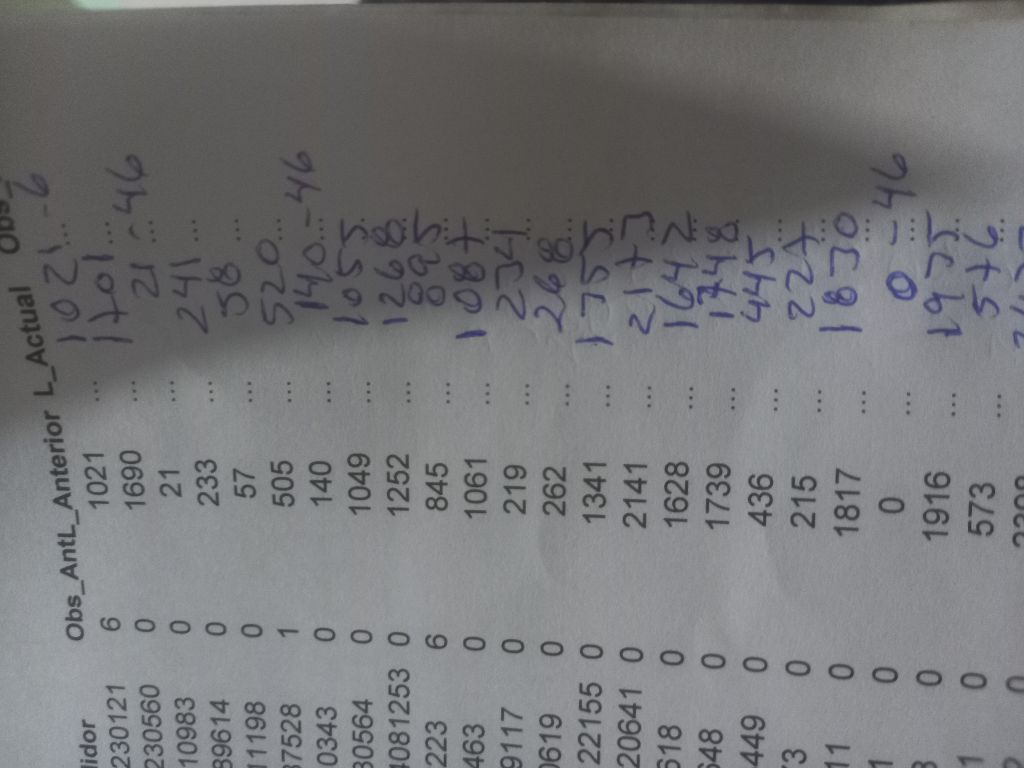 lidor Obs_AntL_Anterior L_Actual Obs_
230121 6 1021 ... 1021 ... -6
230560 0 1690 ... 1701 ...
10983 0 21 ... 21 ... -46
89614 0 233 ... 241 ...
11198 0 57 ... 58 ...
87528 1 505 ... 520 ...
0343 0 140 ... 140 ... -46
80564 0 1049 ... 1055 ...
4081253 0 1252 ... 1268 ...
223 6 845 ...
463 0 1061 ... 1087 ...
91117 0 219 ... 234 ...
0619 0 262 ... 268 ...
22155 0 1341 ... 1355 ...
20641 0 2141 ... 2173 ...
618 0 1628 ... 1642 ...
648 0 1739 ... 1748 ...
4449 0 436 ... 445 ...
73 0 215 ... 227 ...
11 0 1817 ... 1830 ...
81 0 0 ... 0 ... -46
8 0 1916 ... 1935 ...
1 0 573 ... 576 ...
0